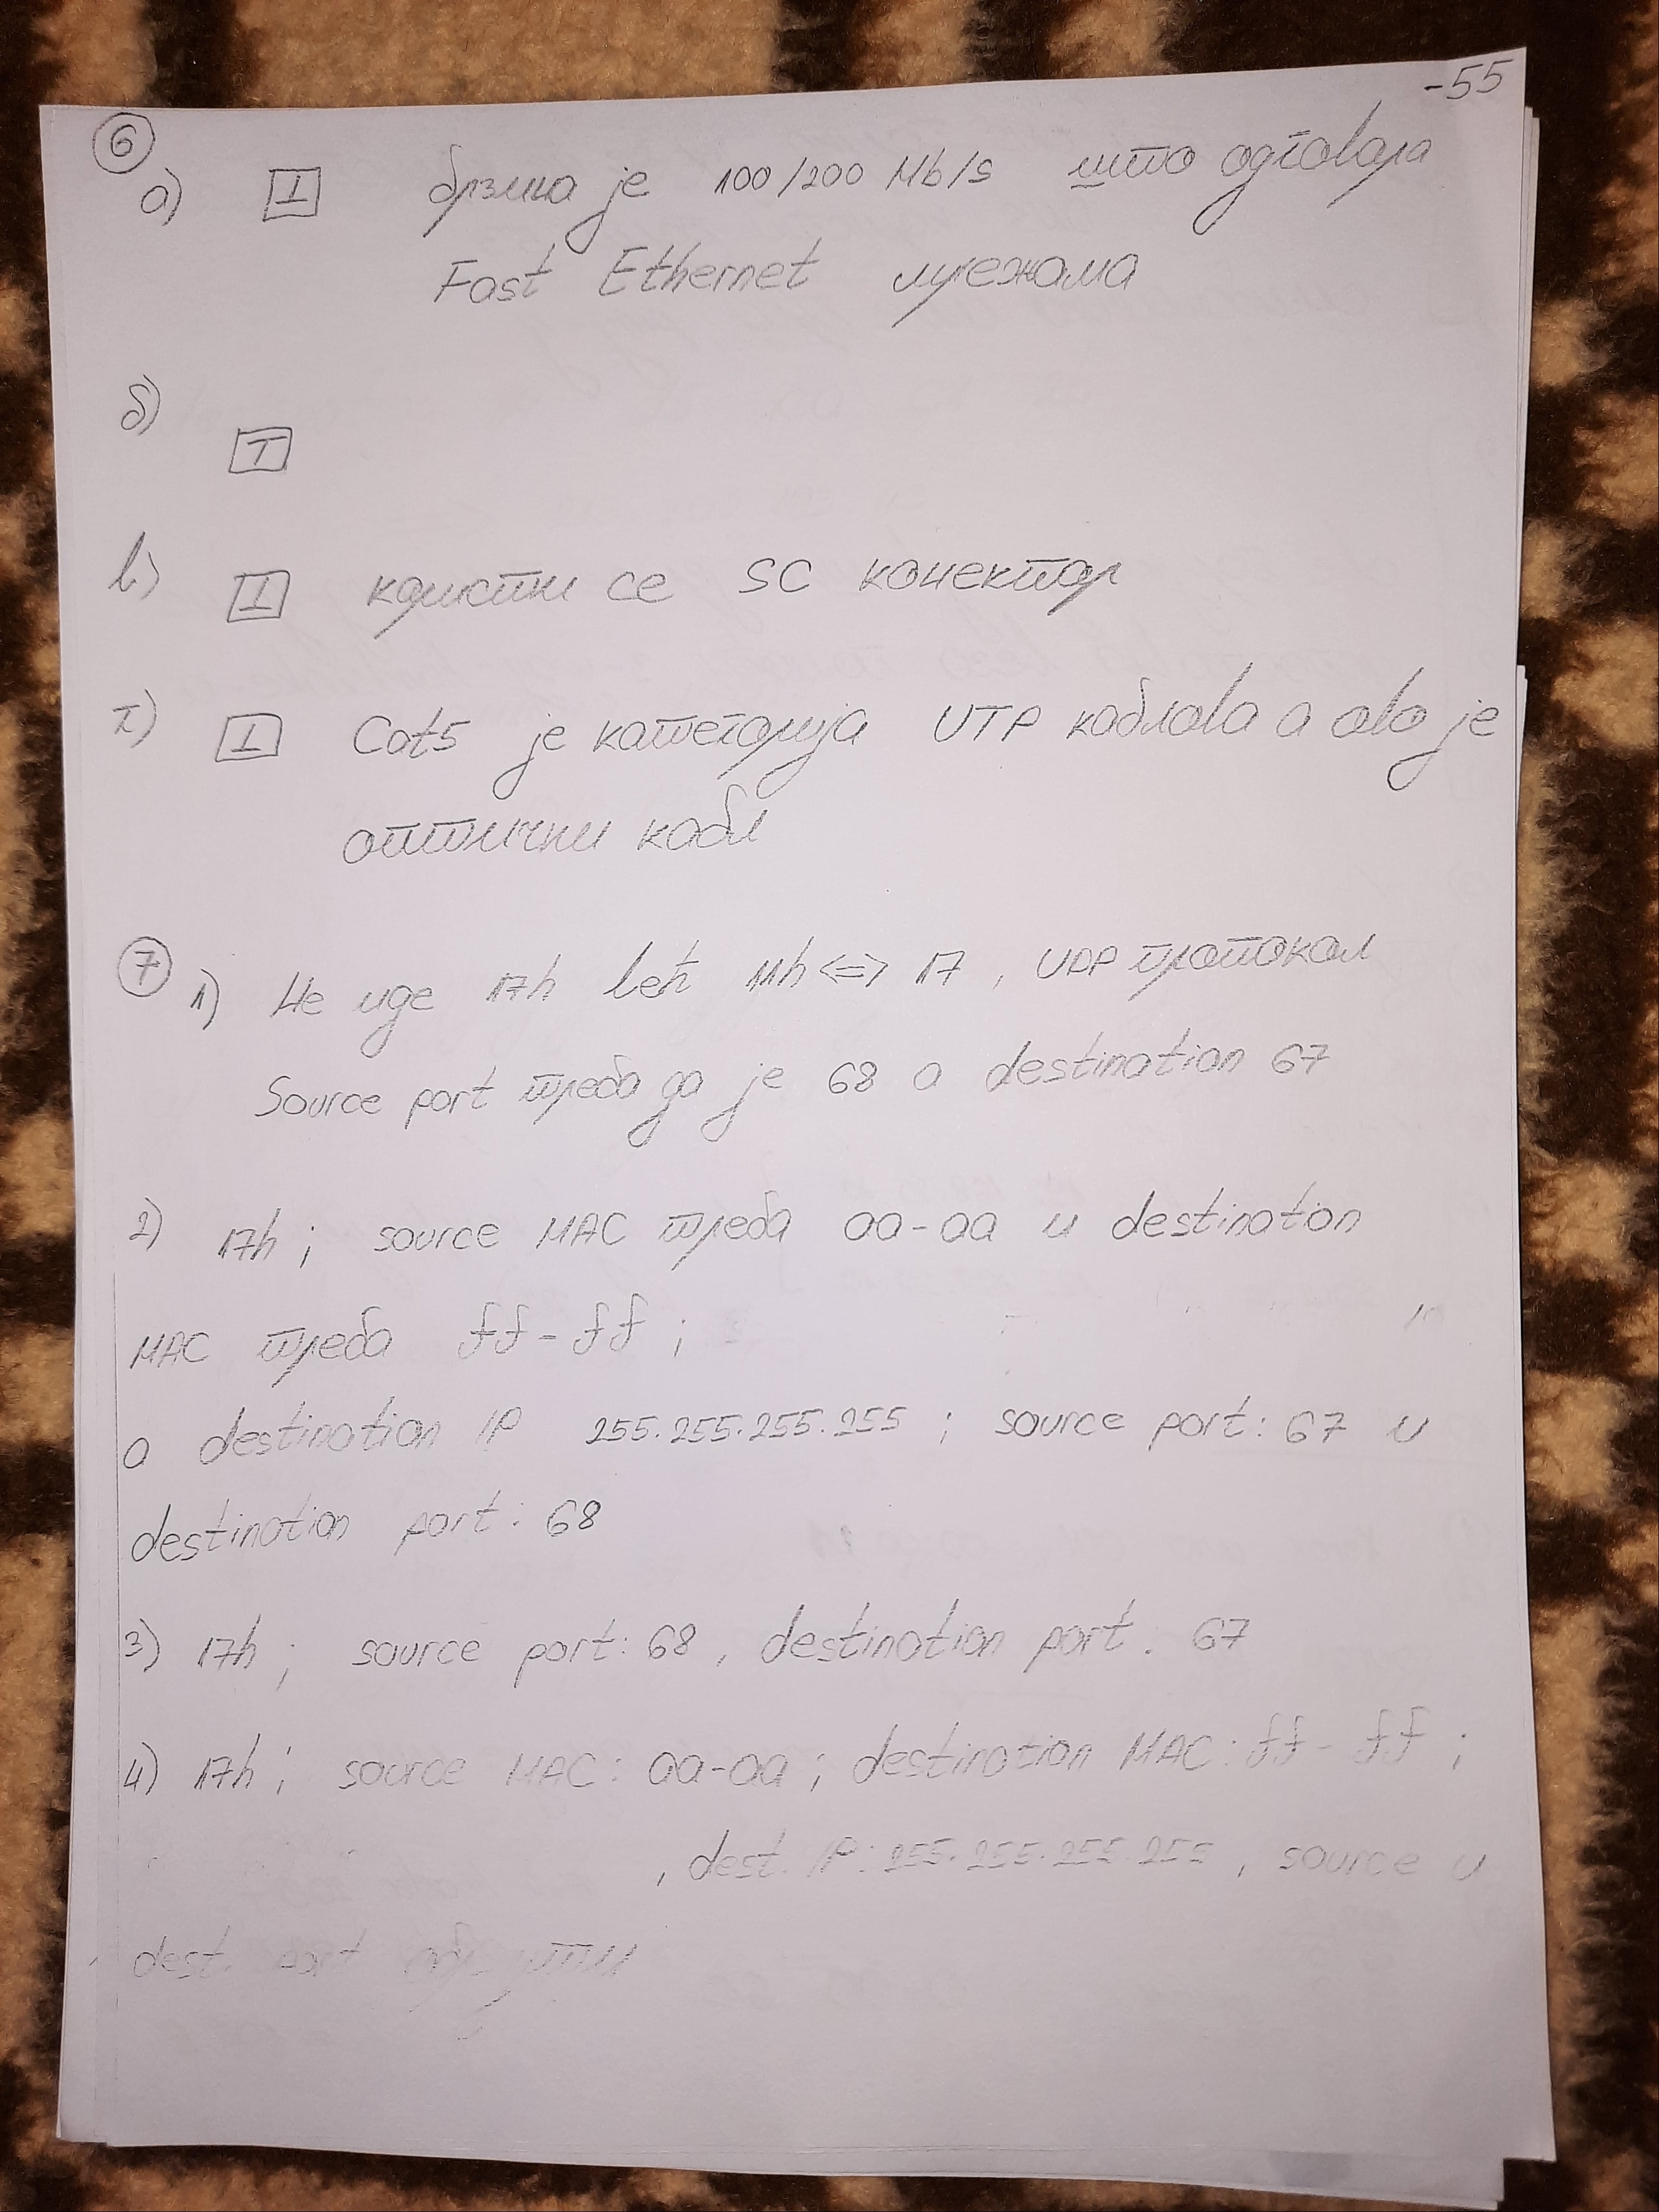 -55
6
а) ⊥ брзина је 100/200 Mb/s што одговара
Fast Ethernet мрежама
б)
T
в) ⊥ користи се SC конектор
г) ⊥ Cat5 је категорија UTP каблова а ово је
оптички кабл
7 1) Не иде 17h већ 11h <=> 17, UDP протокол
Source port треба да је 68 а destination 67
2) 17h; source MAC треба aa-aa и destination
MAC треба ff-ff;
а destination IP 255.255.255.255; source port: 67 и
destination port: 68
3) 17h; source port: 68, destination port. 67
4) 17h; source MAC: aa-aa; destination MAC: ff-ff;
, dest. IP: 255.255.255.255, source и
dest. port